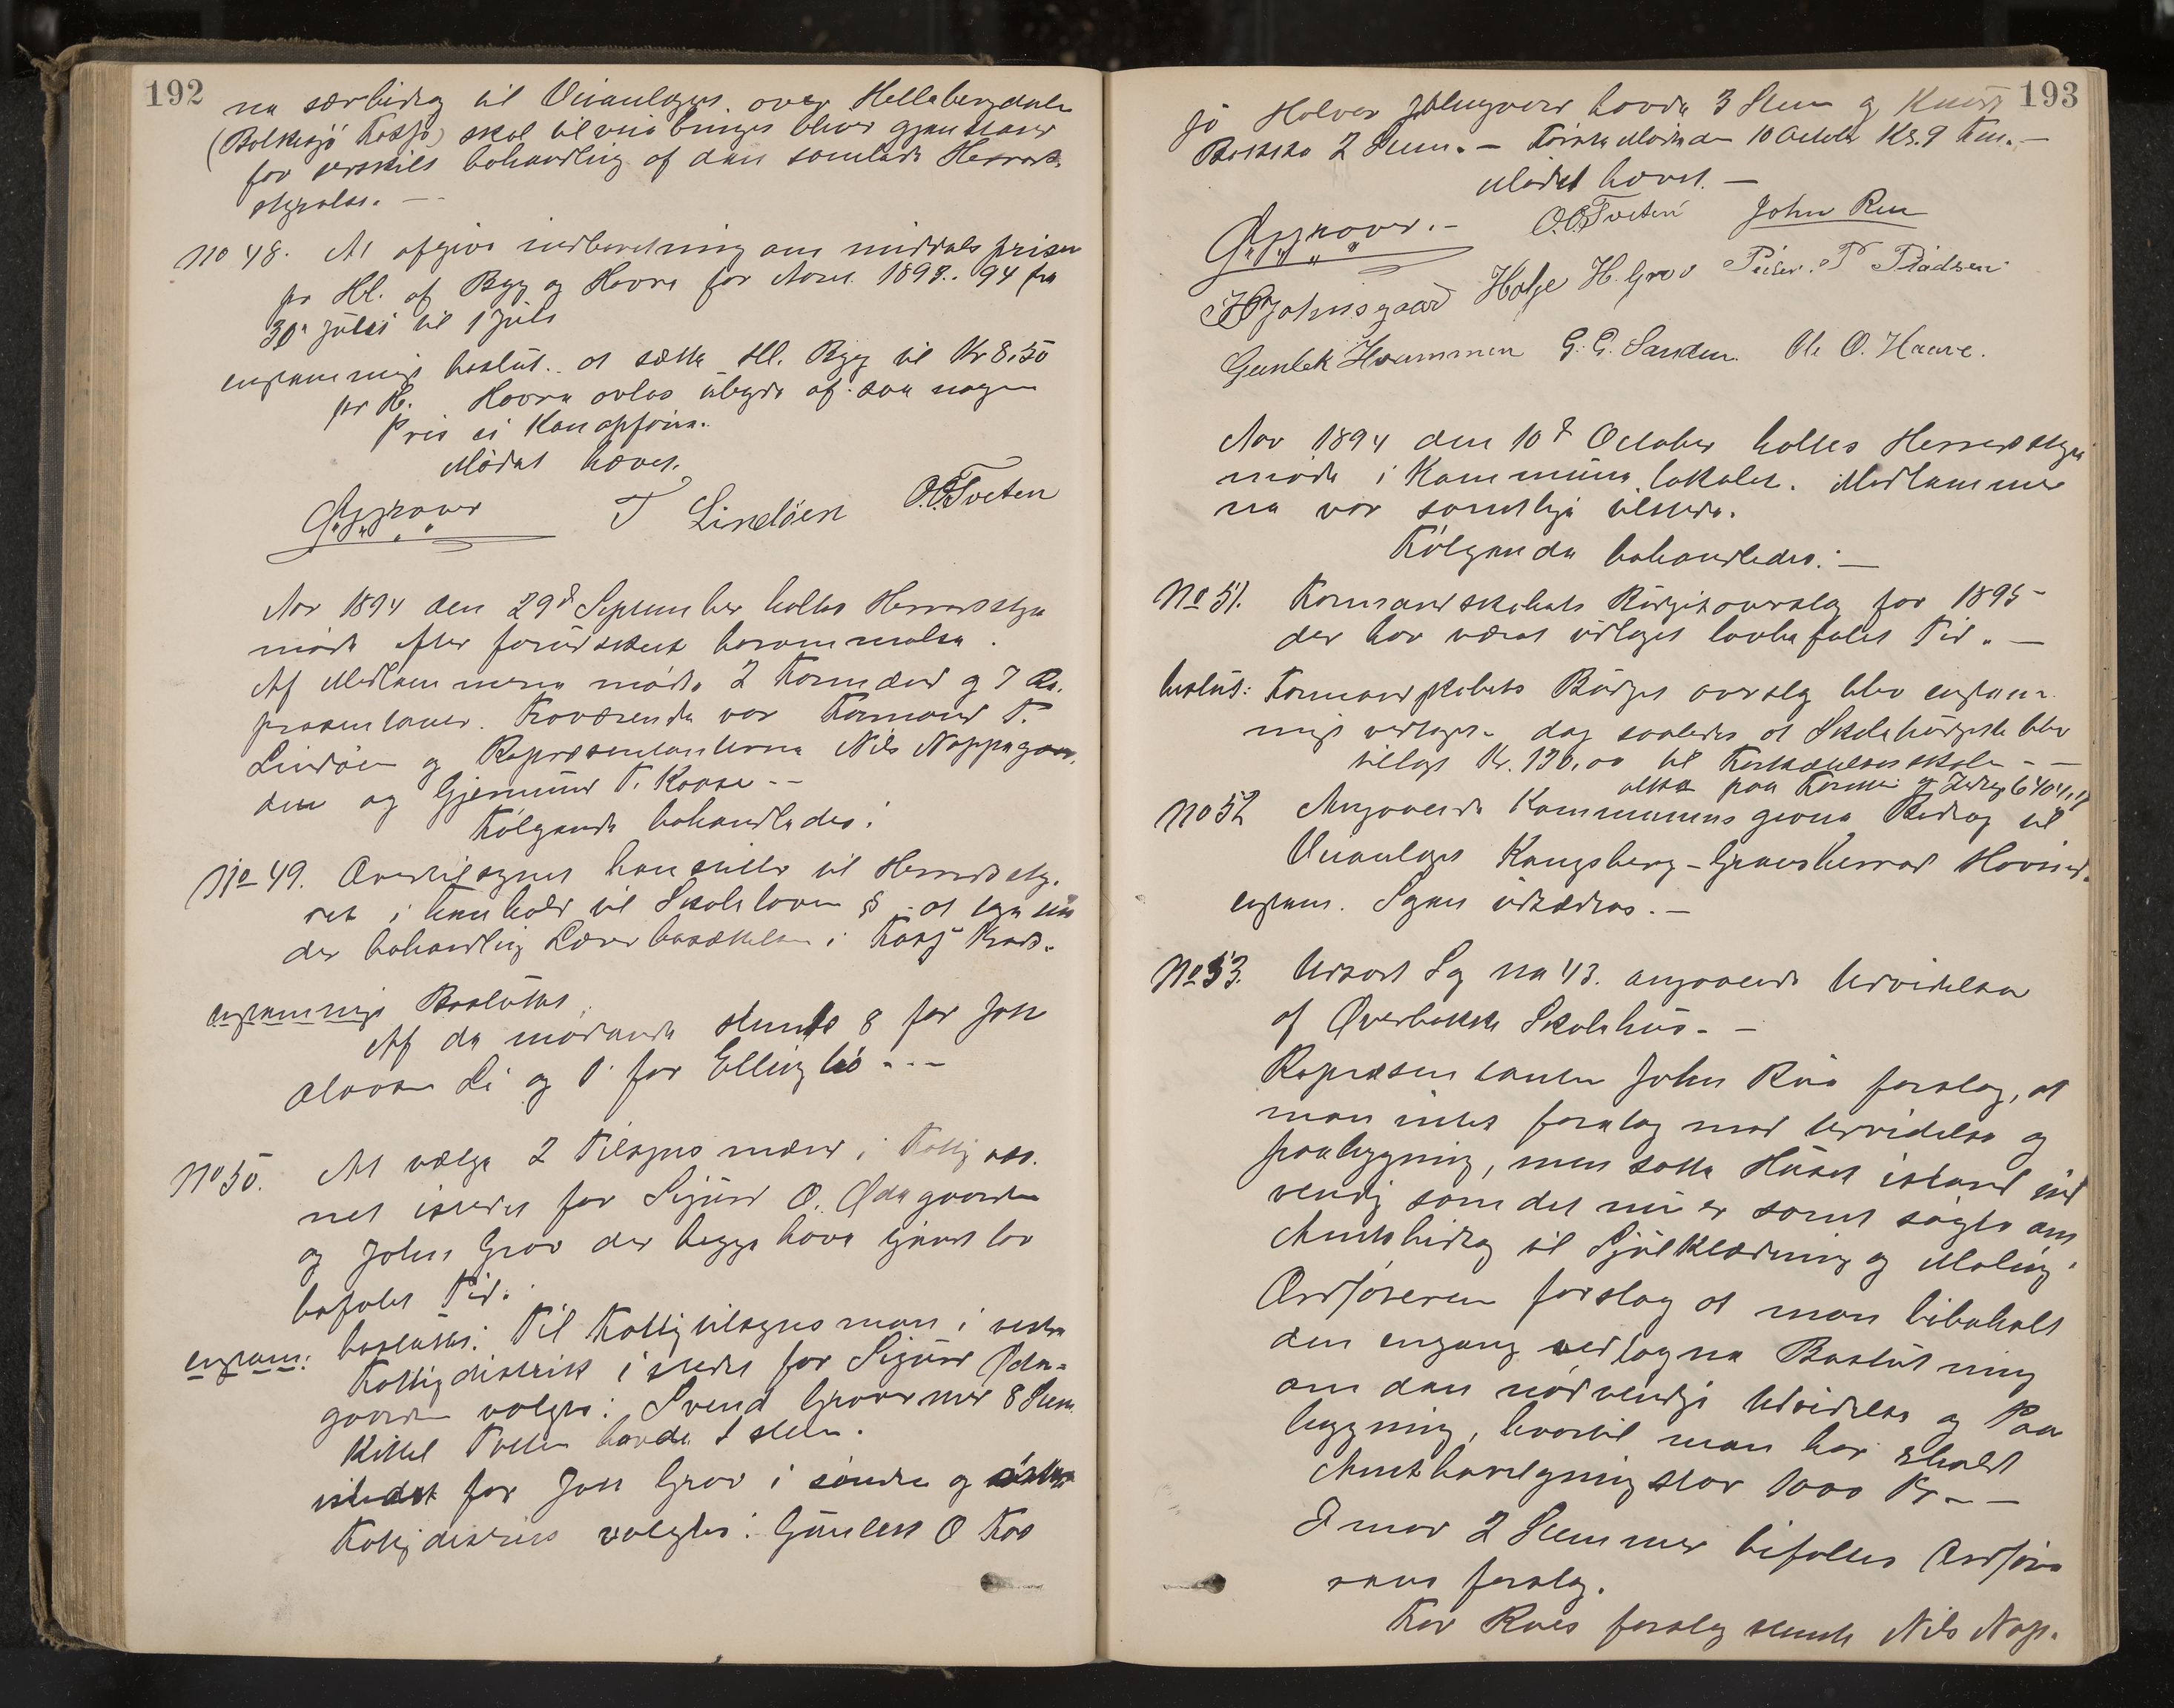 192
na særbidrag til Veianlægget over Hellebergdalen
(Bolkesjö Fossjö) skal tilveiebringes bliver gjenstand
for serskilt behandling af den samlede Herreds
styrelse. —
No 48. At afgive indberetning om middels prisen
pr Hl. af Byg og Havre for Aaret 1893-94 fra
30te Juli til 1 Juli
enstemmigt beslut. at sætte Hl. Byg til Kr 8,50
pr Hl. Havre avles ubetyde af saa nogen
Pris ei kan opføres.
Mödet hævet.
G. G. Grover T Lindöen O.O. Tveten
Aar 1894 den 29d September holtes Herredsstyre
möde efter forudskeet berammelse.
Af Medlemmerne mödte 2 Formænd og 7 Re-
præsentanter. Fraværende var Formand T.
Lindöen og Repræsentanterne Nils Noppegaar-
den og Gjermund T. Kaase --
Fölgende behandledes:
No 49. Overtilsynet henstiller til Herredssty-
ret i henhold til Skoleloven § at tage un
der behandling Lærerbesættelsen i Fossj Kreds.
enstemmigt Besluttet
Af de mödende stemte 8 for Jon
Li og 1 for Elling
No 50. At vælge 2 Tilsyns mænd i Fattigvæs.
net istedet for Sigurd O. Ödegaarden
og John Grov der begge have tjent lov
befalet Tid.
enstem: besluttes: Til Fattigtilsynsman i vestre
Fattigdistrikt i stedet for Sigurd Öde-
gaarden valgtes: Svend Grover med 8 Stem.
Kittel Tveten havde 1 stem.
istedet for Jon Grov i söndre og östre
Fattigdistrikt valgtes: Gunleik O Fos
193
jö Halvor havde 3 Stem og Knut
Bakka 2 Stem. — Förste Möde den 10 October Kl. 9 Fm. —
Mödet hævet. —
G. G. Grover. - O.O. Tveten John Rue
H Johnsgaard Holje H. Grov Peder. P Pladsen
Gunlek Hvammen G. G. Sanden Ole O. Haave.
Aar 1894 den 10d October holtes Herredsstyre
möde i Kommune lokalet. Medlemmer
ne var samtlige tilstede.
Fölgende behandledes: —
No 51. Formandskabets Budgetoverslag for 1895
der har været udlaget lovbefalet Tid. —
beslut: Formandskabets Budget overslag blev enstem-
migt vedtaget - dog saaledes at Skolebudgettet blev
tillagt Kr. 130,00 til Fortsættelsesskolen - —
altsaa paa Formue og Indtægt 6404,18
No 52 Angaaende Kommunens givne Bidrag til
Veianlæget Kongsberg - Grændseherred Hovind.
enstem. Sagen udsættes. —
No 53. Udsat Sag no 43. angaaende Udvidelse
af Øverbekke Skolehus. —
Repræsentanten John Rue forslag, at
man intet foretog med Udvidelse og
paabygning, men satte Huset istand ind
vendig som det nu er samt sögte om
Amtsbidrag til Kledning og Maling.
Ordföreren forslag at man bibeholt
den engang vedtagne Beslutning
om den nödvendige Udvidelse og Paa
bygning, hvortil man har erholdt
Amtsbevilgning stor 1000 Kr. —
8 mod 2 Stemmer bifaltes Ordföre
rens forslag.
For Rues forslag stemte Nils Nop-